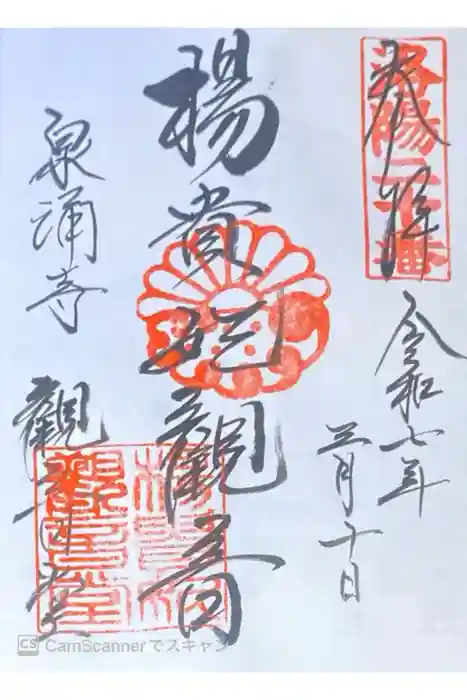 奉拝
洛陽二十番
令和七年
三月十日
楊貴妃観音
泉涌寺
觀音堂
CS CamScannerでスキャン